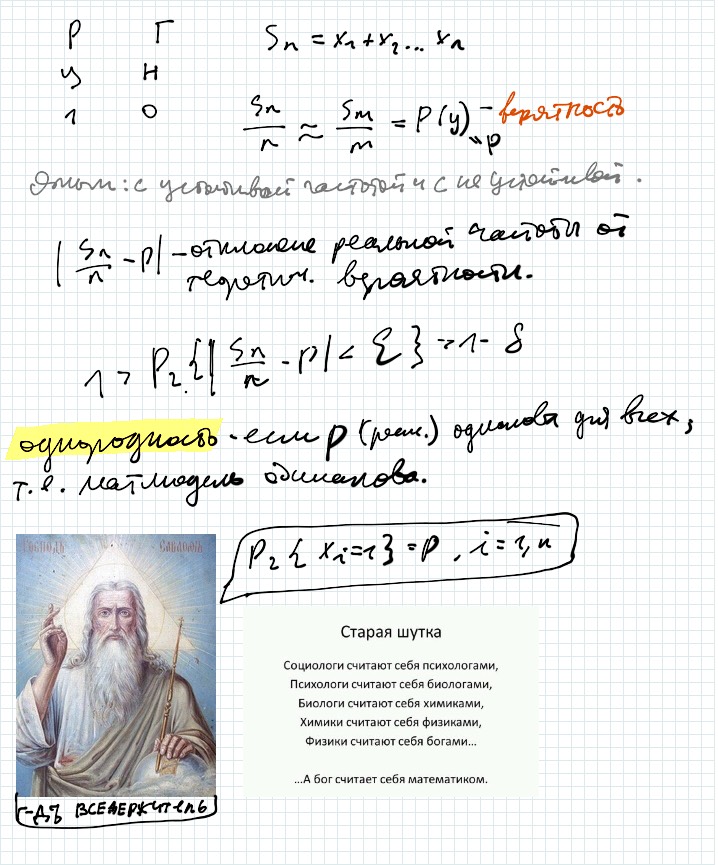 Р Г Sn = x1+x2... xn
У Н
1 0 Sn/n ≈ Sm/m = P(y) - верятность
"p
Опыт: с устойчивой частотой и с не устойчивой.
|Sn/n - p| - отклонение реальной частоты от
теоретич. вероятности.
1 > P2{|Sn/n - p| < ε} > 1 - δ
однородность - если p (реал.) одинакова для всех,
т.е. матмодель одинакова.
ГОСПОДЬ САВАОФЪ
P2 { xi=1} = p , i = 1,n
Старая шутка
Социологи считают себя психологами,
Психологи считают себя биологами,
Биологи считают себя химиками,
Химики считают себя физиками,
Физики считают себя богами...
...А бог считает себя математиком.
Г-ДЪ ВСЕДЕРЖИТЕЛЬ